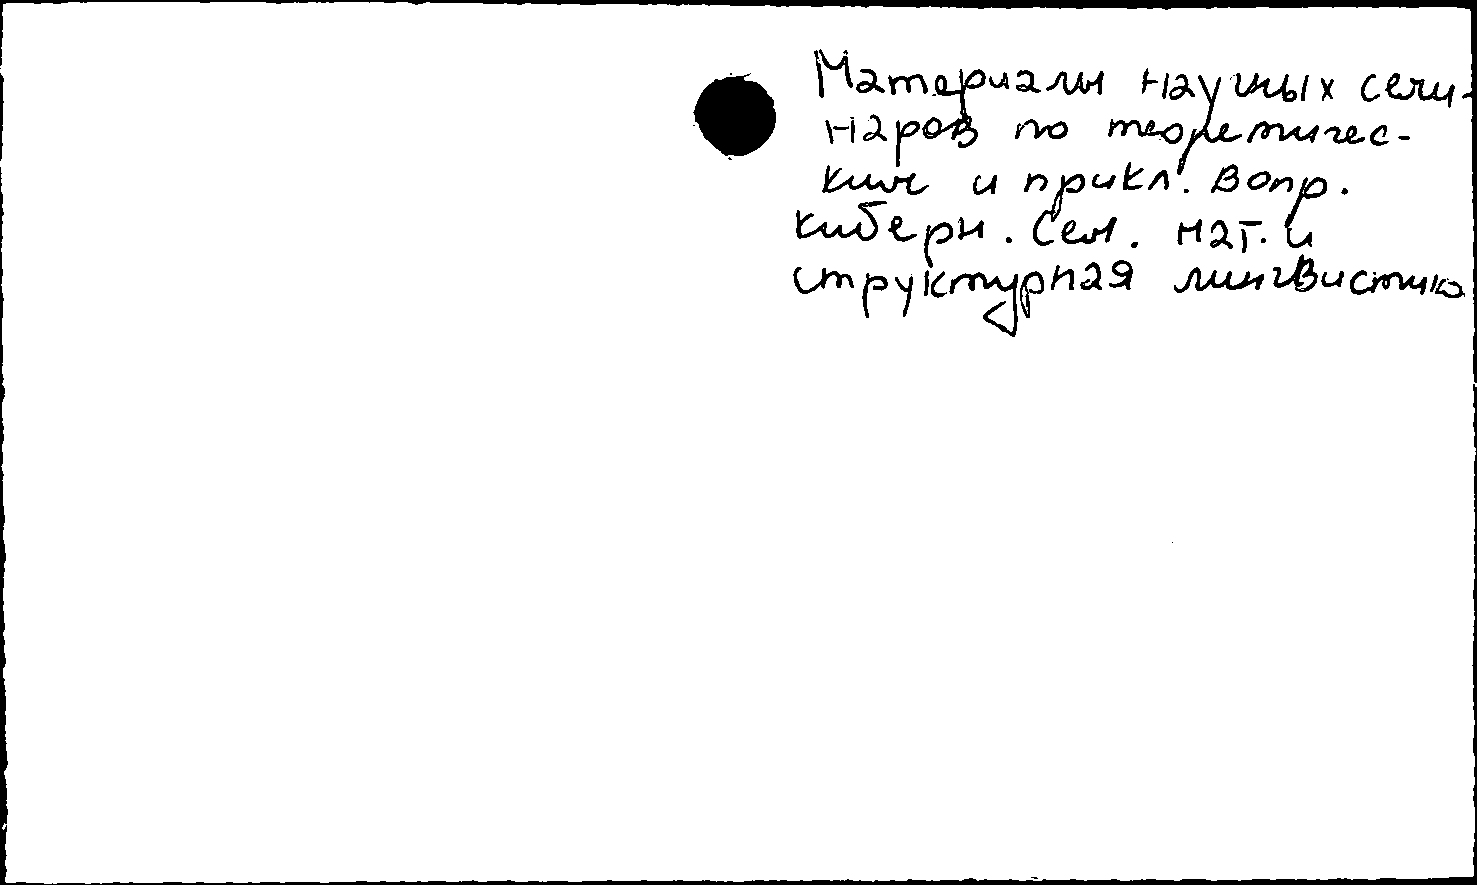 Материалы научных семи-
наров по теоретичес-
ким и прикл. вопр.
киберн. Сем. мат. и
структурная лингвистика